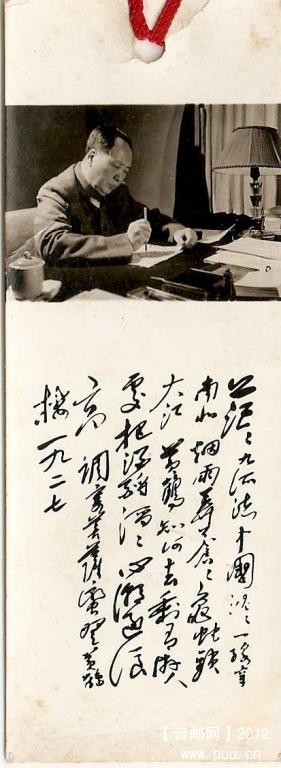 茫々九派流中國沉々一線穿
南北 烟雨莽蒼々龜蛇鎖
大江 黄鶴知何去剩有遊人
處把酒酹滔々心潮逐浪
高 調寄菩薩蠻登黄鶴
樓 一九二七
【普邮网】2012
www.puu.cn